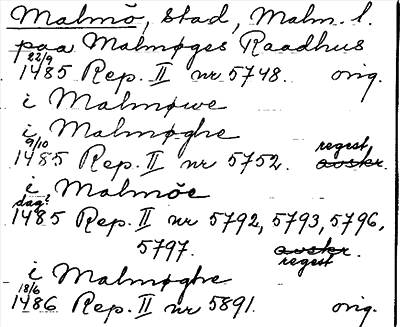 Malmö, stad, Malm. l.
paa Malmøges Raadhus
22/9
1485 Rep. II nr 5748. orig.
i Malmøwe
i Malmøghe
9/10 regest.
1485 Rep. II nr 5752. avskr.
i Malmöe
dag?
1485 Rep. II nr 5792, 5793, 5796,
5797. avskr.
regest
i Malmøghe
18/6
1486 Rep. II nr 5891. orig.